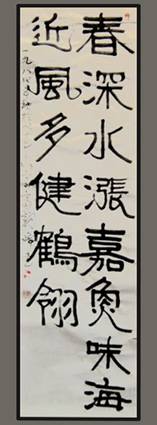 春深水漲嘉魚味海
近風多健鶴翎